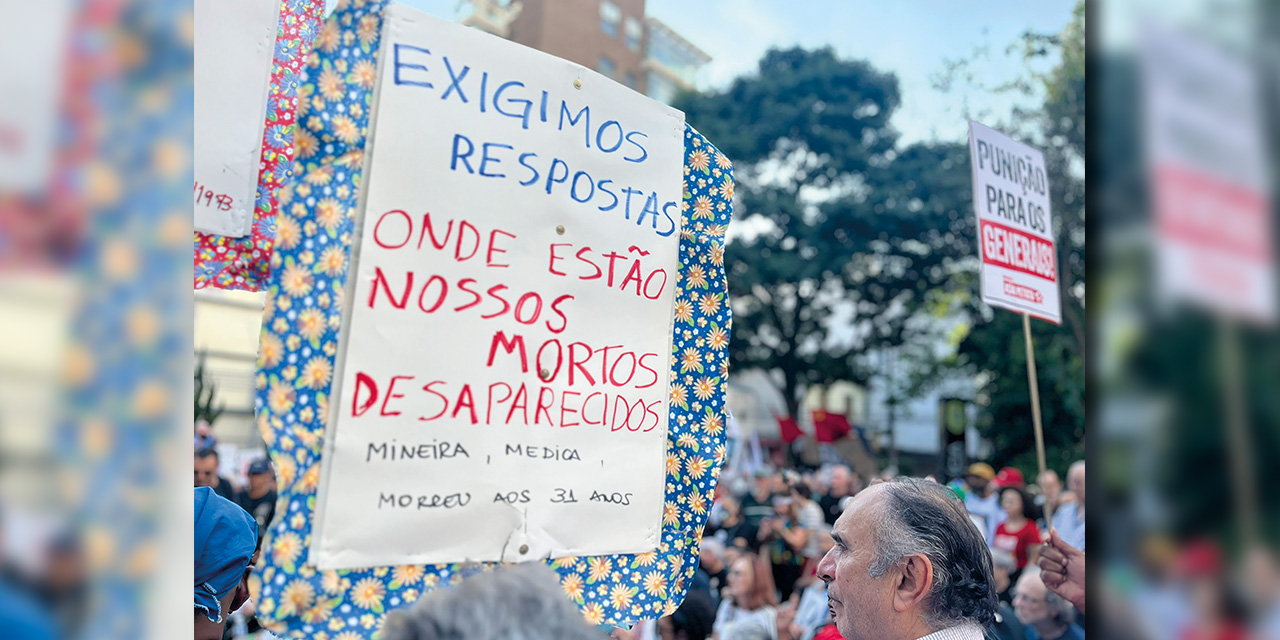 /1973
EXIGIMOS
RESPOSTAS
ONDE ESTÃO
NOSSOS
MORTOS
DESAPARECIDOS
MINEIRA, MEDICA,
MORREU AOS 31 ANOS
PUNIÇÃO
PARA OS
GENERAIS!